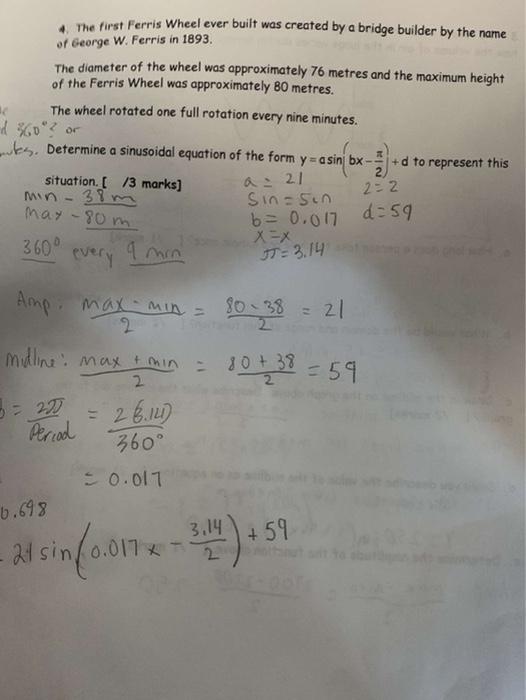 4. The first Ferris Wheel ever built was created by a bridge builder by the name
of George W. Ferris in 1893.
The diameter of the wheel was approximately 76 metres and the maximum height
of the Ferris Wheel was approximately 80 metres.
The wheel rotated one full rotation every nine minutes.
360°? or
Determine a sinusoidal equation of the form y = a sin(bx - π/2) + d to represent this
situation. [ /3 marks]
a = 21
2 = 2
min - 38 m
sin = sin
max - 80 m
b = 0.017
d = 59
x = x
360° every 9 min
π = 3.14
Amp: max - min / 2 = 80 - 38 / 2 = 21
midline: max + min / 2 = 80 + 38 / 2 = 59
= 2π / Period = 2(3.14) / 360°
= 0.017
0.698
21 sin(0.017x - 3.14/2) + 59